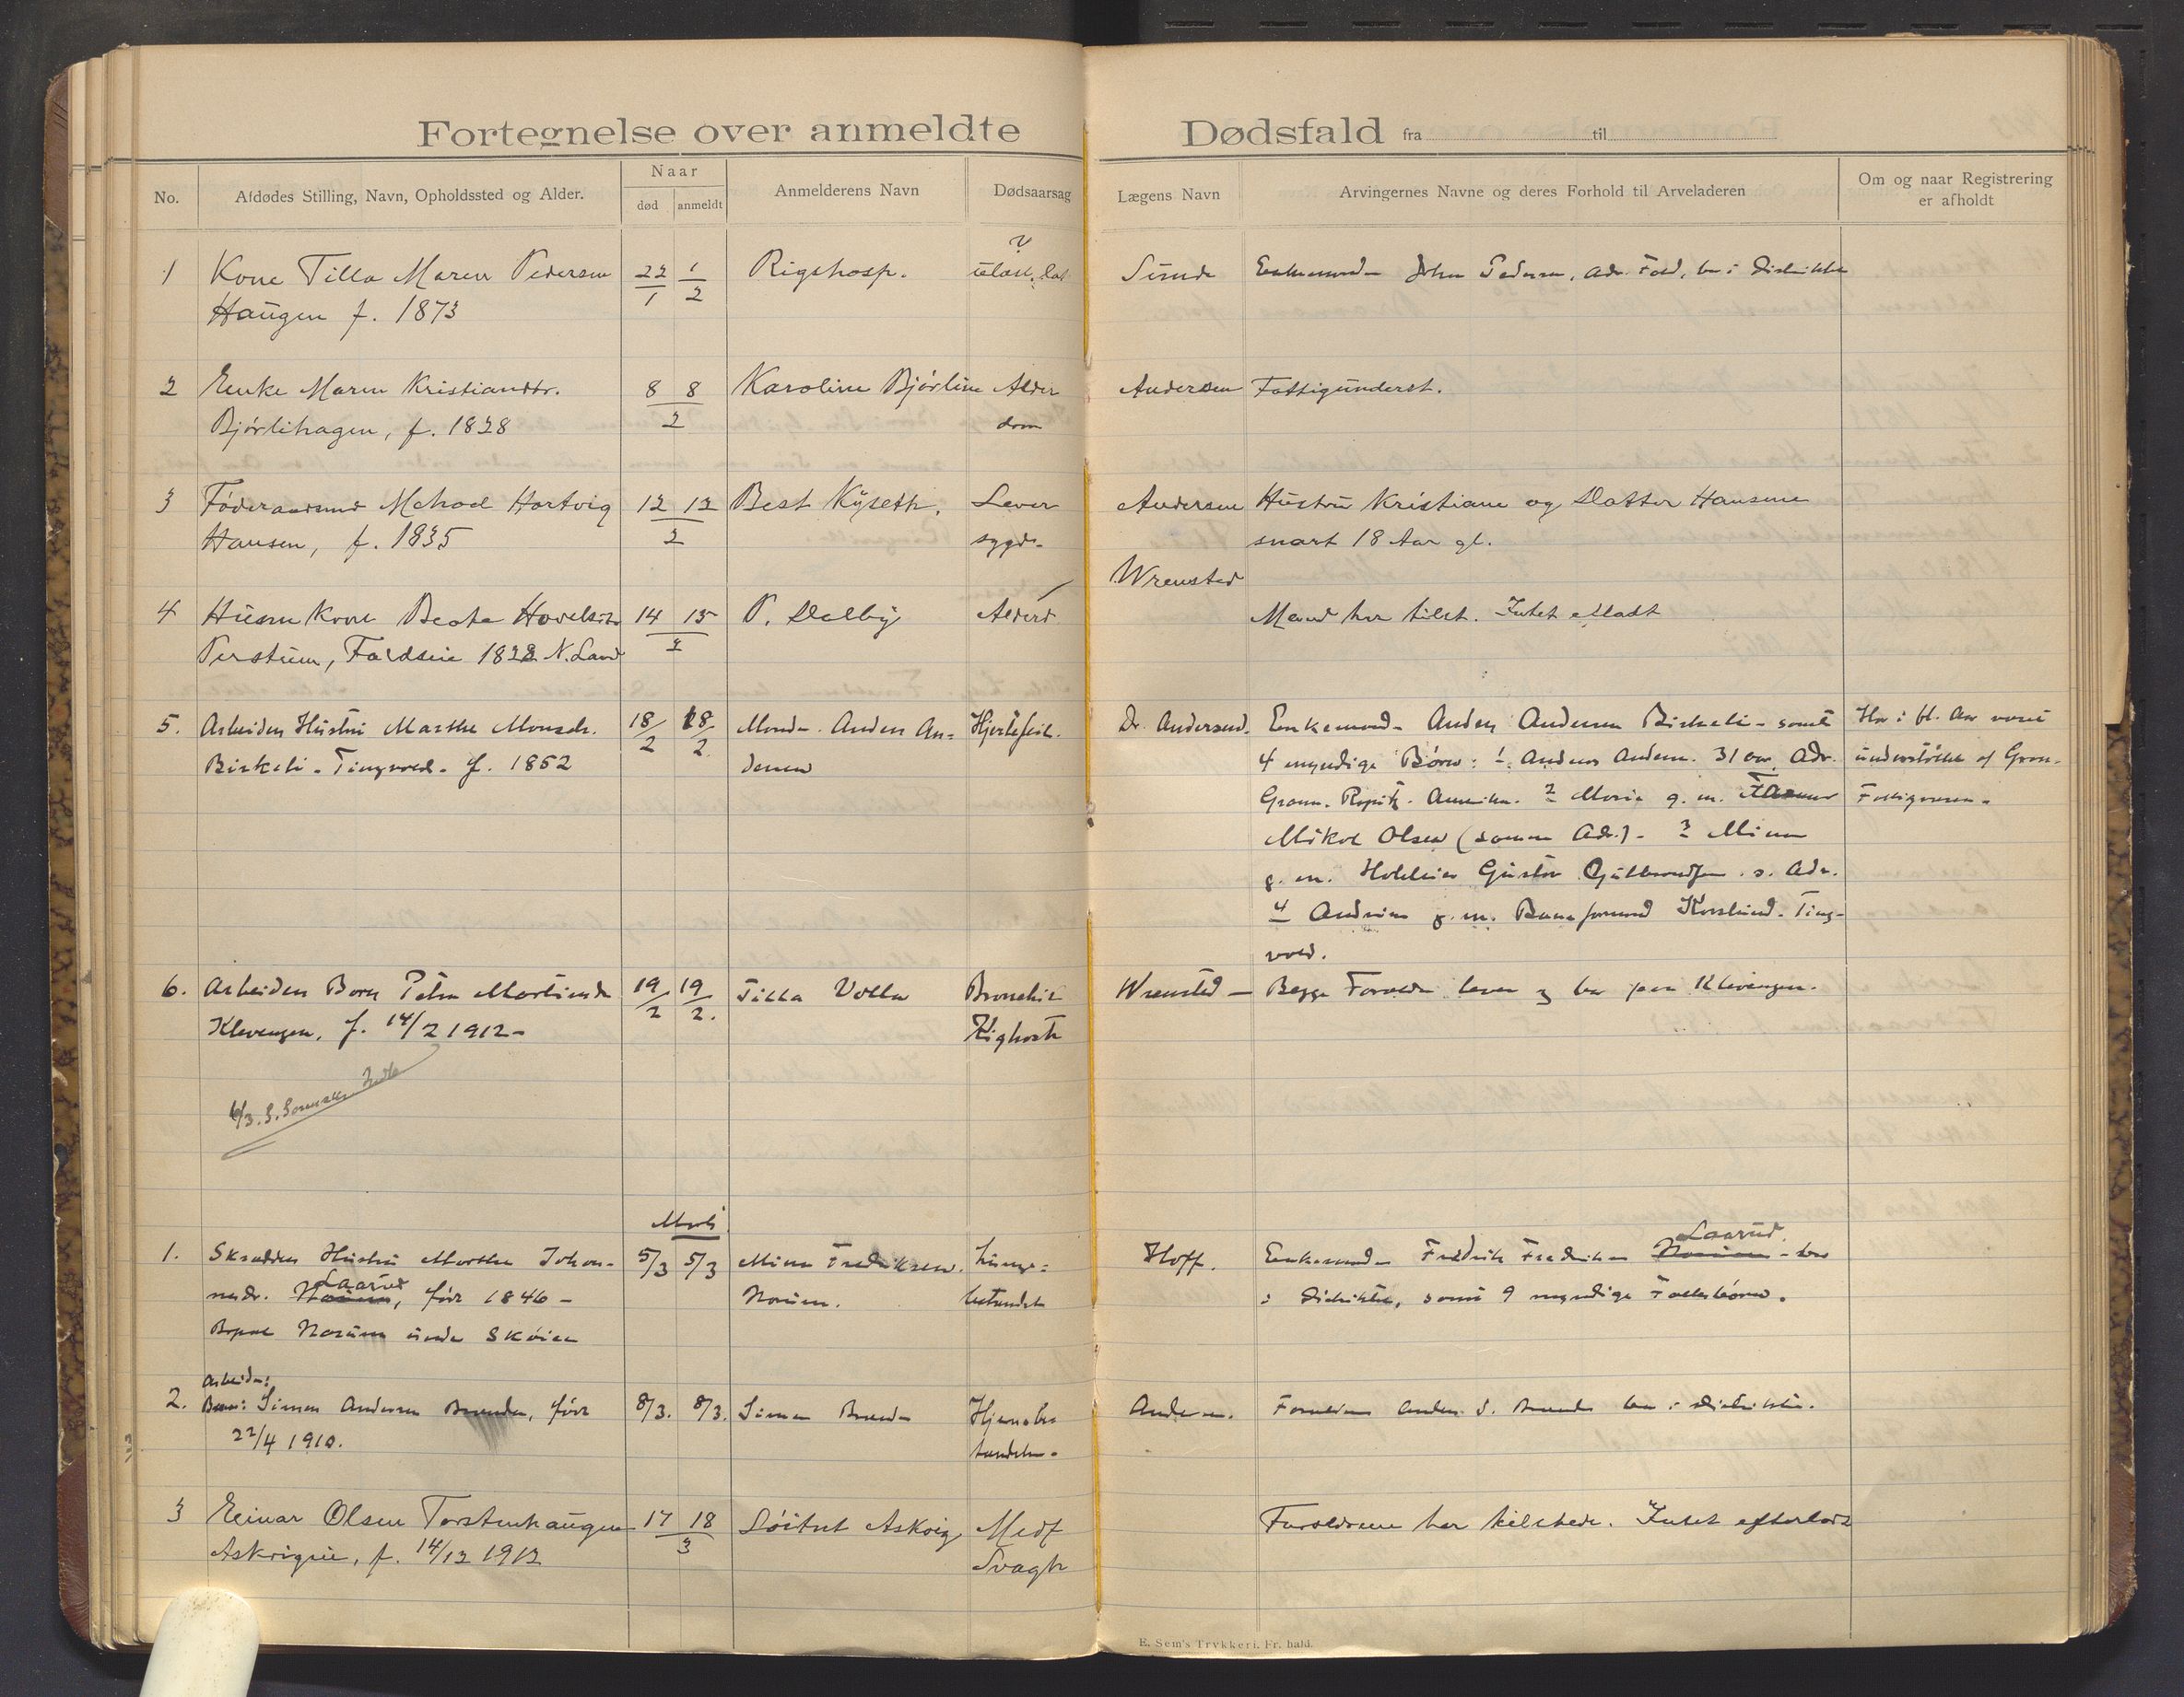 Fortegnelse over anmeldte Dødsfald fra til
No.
Afdødes Stilling, Navn, Opholdssted og Alder.
Naar
død anmeldt
Anmelderens Navn
Dødsaarsag
Lægens Navn
Arvingernes Navne og deres Forhold til Arveladeren
Om og naar Registrering
er afholdt
1 Kone Tilla Maren Pedersen 22/1 1/2 Rigshosp. ? Sunde Enkemand John Pedersen, adr. Fold, bor i Distriktet
Haugen f. 1873
2 Enke Maren Kristiansdtr. 8 8/2 Karoline Bjørlien Alder Andersen Fattigunderst.
Bjørlihagen, f. 1828 dom
3 Hartvig 12 12/2 Best Kyseth. Lever Andersen Hustru Kristiane og Datter Hansine
Hansen, f. 1835 sygd. snart 18 Aar gl.
Wrensted
4 Kone Beate 14 15/2 P. Dalby Alderd. Mand har tilst. Intet efladt
Perstuen, N. Land
5. Arbeider Hustru Marthe Monsdr. 18/2 18/2 Manden Anders An- Hjertefeil. Dr. Andersend. Enkemand Anders Andersen Birkeli - samt Har i fl. Aar været
Birkeli - Tingvold - f. 1852 dersen 4 myndige Børn: 1. Anders Andersen. 31 aar, Adr. understøttet af Gran
Amerika. 2 Marie g. m. Farmer Fattigvæsen.
Mikal Olsen (samme Adr.) - 3 Mina
g. m. Gustav Gulbrandsen. s. Adr.
4 g. m. Baneformand Korslund. Ting-
vold.
6. Arbeider Barn Petra Martinsdr 19/2 19/2 Tilla Volla Bronchit Wrensted - Begge Forældre lever og bor paa Klevengen.
Klevengen, f. 14/2 1912 - Kighoste
6/3. S.
Marts
1. Skrædder Hustru Marthe Johan- 5/3 5/3 Mina Fredriksen. Lunge- Hoff. Enkemanden Fredrik Fredriksen Laarud - bor
nesdr. Laarud, født 1846 - Norum. betændelse i Distriktet, samt 9 myndige Fællesbørn.
Bopæl Norum under Skøien
Arbeider
2. Barn: Simen Andersen Brenden, født 8/3. 8/3. Simen Brenden Hjernebe Andersen. Forældrene Anders S. Brenden bor i Distriktet.
22/4 1910. tændelse.
3 Einar Olsen Torstenhaugen 17 18/3 Løitnt Askvig Medf Forældrene har tilstede. Intet efterladt
Askvigeie, f. 14/12 1912 Svagh
E. Sem's Trykkeri. Fr. hald.